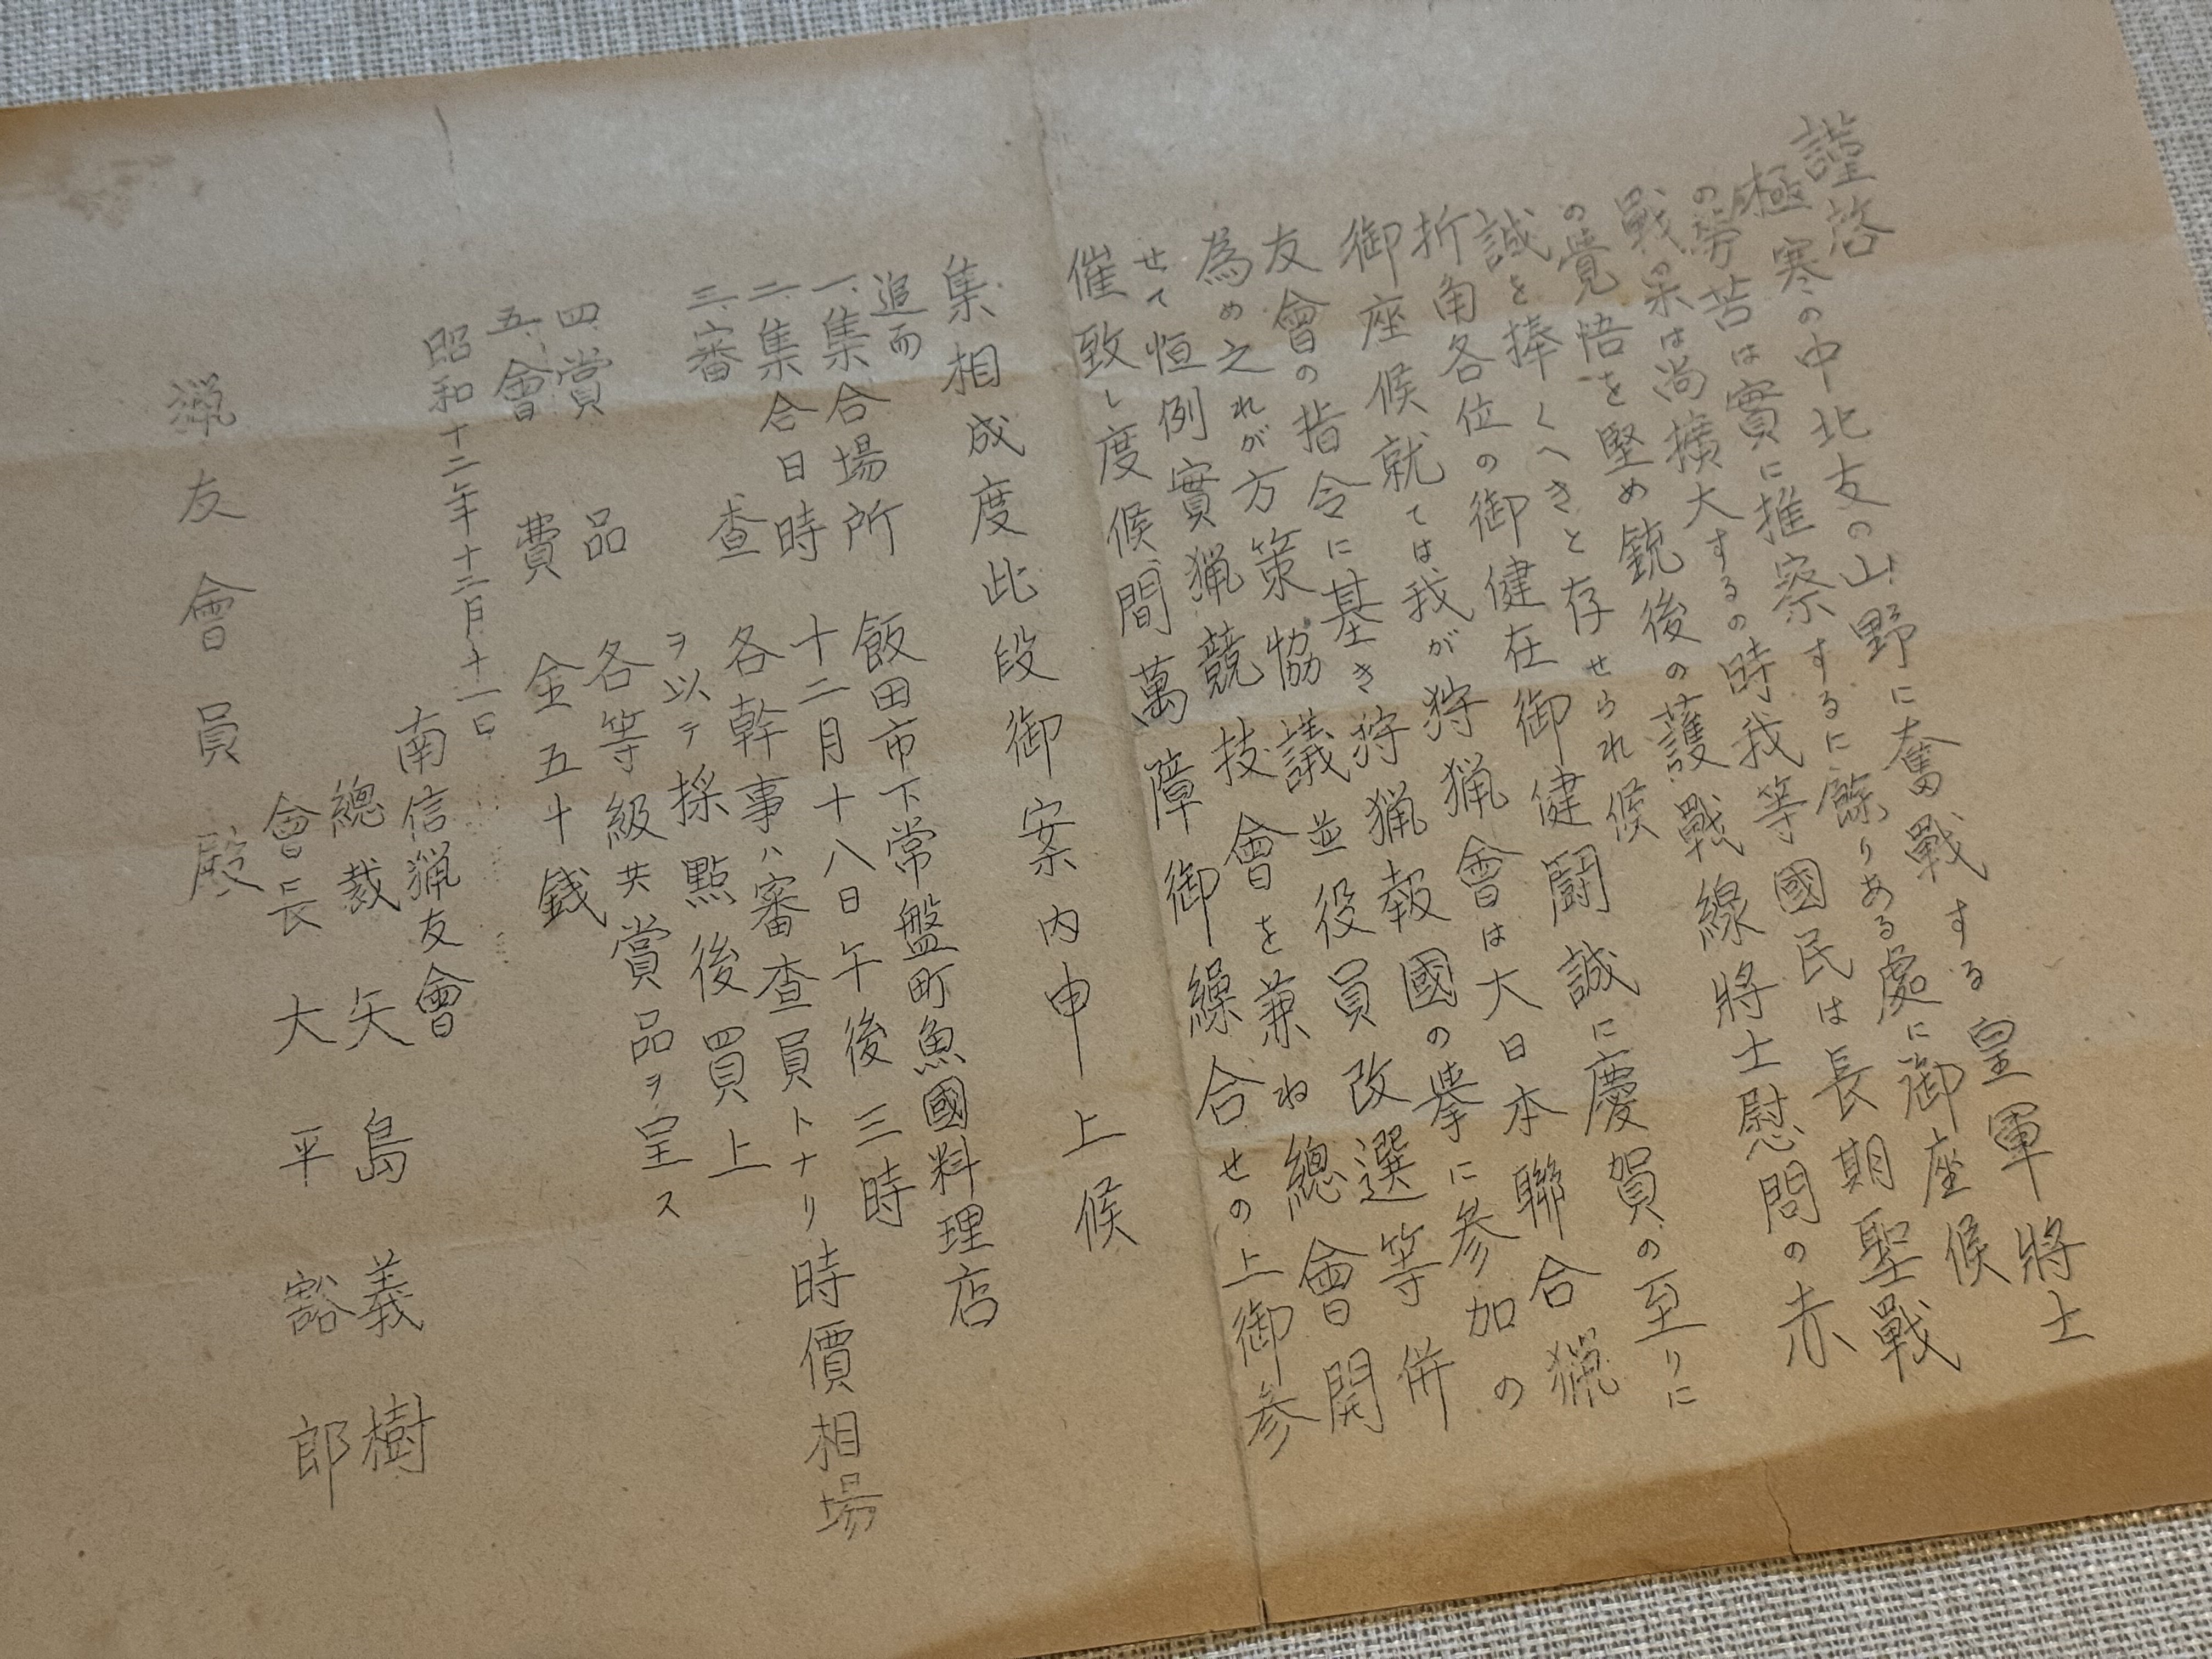 謹啓
極寒の中北支の山野に奮戰する皇軍將士
の労苦は實に推察するに餘りある處に御座候
戰果は尚擴大するの時我等國民は長期聖戰
の覚悟を堅め銃後の護り戰線將士慰問の赤
誠を捧くへきと存せられ候
折角各位の御健在御健闘誠に慶賀の至りに
御座候就ては我が狩猟會は大日本聯合猟
友會の指令に基き狩猟報國の挙に参加の
為め之れが方策協議並役員改選等併
せて恒例實猟競技會を兼ね總會開
催致し度候間萬障御繰合せの上御参
集相成度此段御案内申上候
追而
一、集合場所 飯田市下常盤町魚國料理店
二、集合日時 十二月十八日午後三時
三、審査 各幹事ハ審査員トナリ時價相場
ヲ以テ採點後買上
四、賞品 各等級共賞品ヲ呈ス
五、會費 金五十錢
昭和十二年十二月十一日
南信猟友會
總裁 矢島義樹
會長 大平豁郎
猟友會員殿